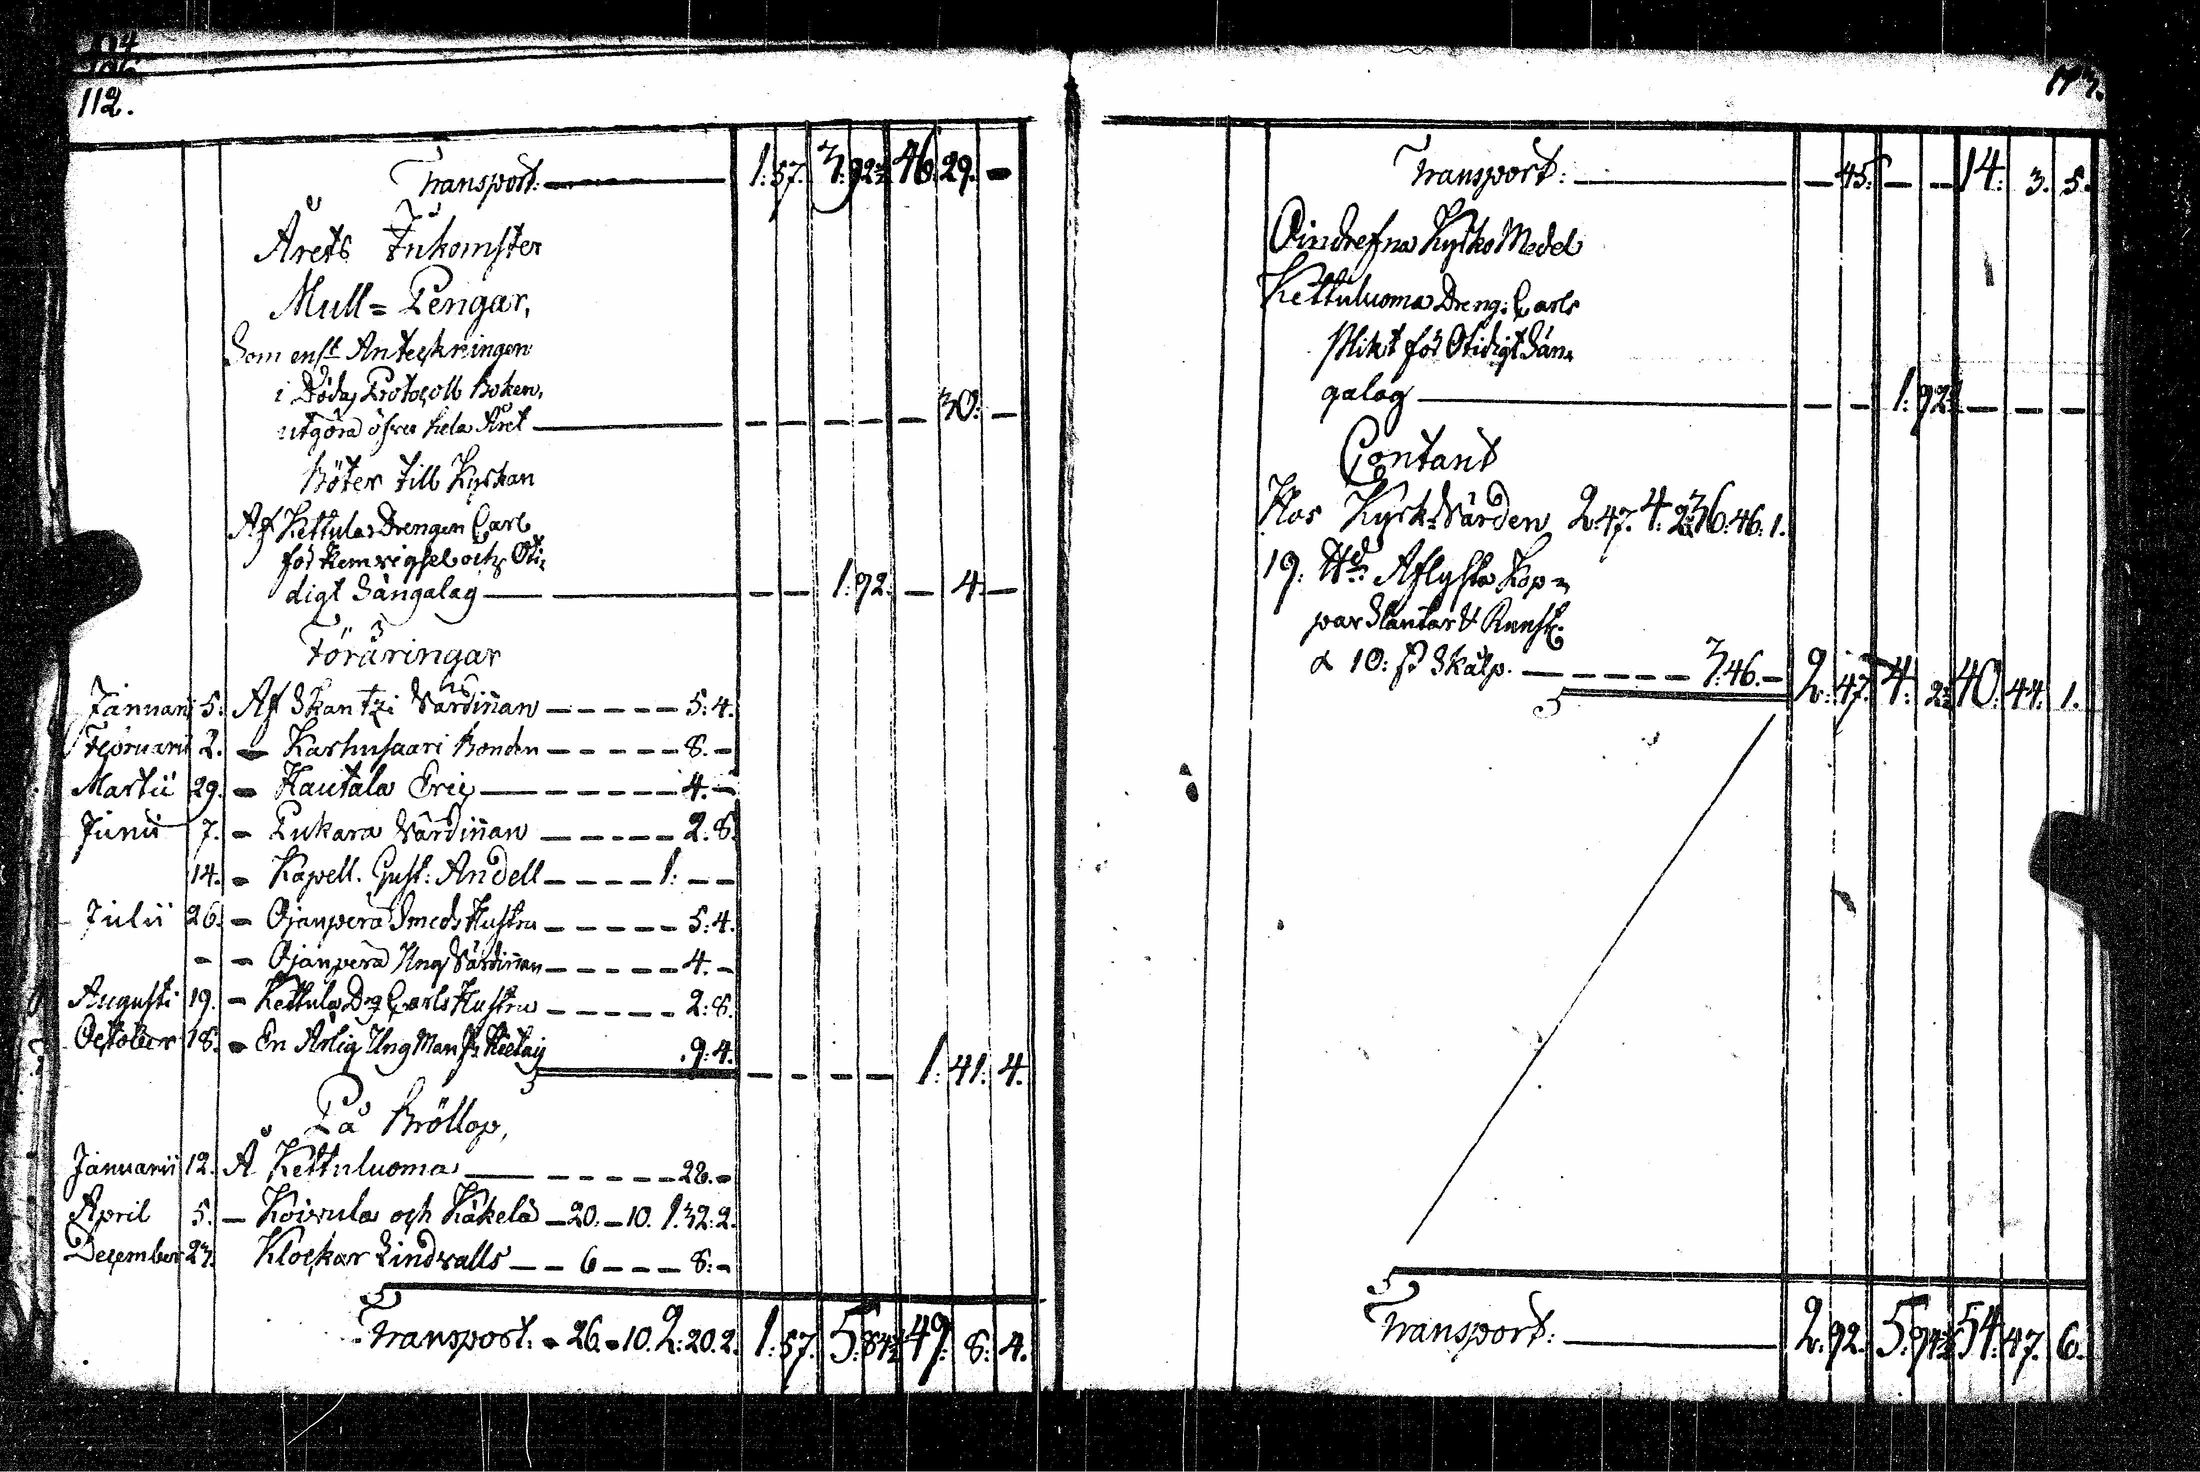 112.
Transport: 1: 57. 3: 92½ 46: 29. –
Årets Inkomster
Mull = Pengar,
Som enl:t Anteckningen
i Döda Protocoll Boken,
utgöra öfver hela Året – – – – – 30: –
Böter till Kyrkan
Af Kettula Drengen Carl
för hemvigsel och Oti=
digt Sängalag – – 1: 92. – 4. –
Föräringar
Januarii 5. Af Skantzi Värdinnan – – – – – 5: 4.
Februarii 2. – Karhusaari Bonden – – – – – 8. –
Martii 29. – Hautala Eric – – – – – 4. –
Junii 7. – Pukara Värdinnan – – – – 2. 8.
14. – Kapell. Gust: Andell – – – – 1: – –
Julii 26. – Ojanperä Smeds Hustru – – – – – 5: 4.
– – Ojanperä Unga Värdinnan – – – – – 4. –
Augusti 19. – Kettula Dg Carls Hustru – – – – 2: 8.
October 18. – En Ärlig Ung Man 9: 4. – – – – 1: 41: 4.
På Bröllop,
Januarii 12. Å Kettuluoma – – – – – 28. –
April 5. – Koivula och Käkelä – 20. – 10. 1. 32: 2.
December 27. Klockar Lindvalls – – 6 – – – 8: –
Transport. – 26. – 10. 2: 20. 2. 1: 57. 5: 84½ 49: 8: 4.
113.
Transport: – 45: – – 14: 3. 5.
Oindrefna Kyrko Medel
Kettuluoma Dreng: Carls
Plikt för Otidigt Sän=
galag – – 1: 92½ – – –
Contant
Hos Kyrk=Värden 2: 47. 4: 2½ 36: 46. 1.
19. Aflysta Kop=
par Slantar &
α 10: Skålp. – – – – – 3: 46. – 2: 47. 4: 2½ 40: 44. 1.
Transport: 2. 92. 5: 94½ 54: 47. 6.